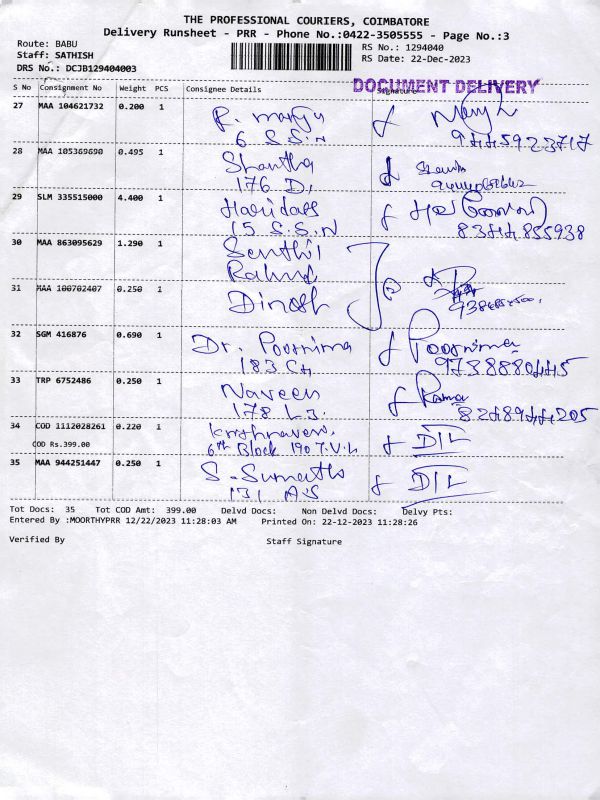 THE PROFESSIONAL COURIERS, COIMBATORE
Delivery Runsheet - PRR - Phone No.:0422-3505555 - Page No.:3
Route: BABU
Staff: SATHISH
DRS No.: DCJB129404003
RS No.: 1294040
RS Date: 22-Dec-2023
DOCUMENT DELIVERY
S No Consignment No Weight PCS Consignee Details Signature
27 MAA 104621732 0.200 1 R. Manju
6 S.S.N
28 MAA 105369690 0.495 1 Shantha
176 D,
29 SLM 335515000 4.400 1 Haridass
15 S.S.N
8344855938
30 MAA 863095629 1.290 1 Senthil
31 MAA 100702407 0.250 1 Dinesh
32 SGM 416876 0.690 1 Dr. Poornima Poornima
183 9738880445
33 TRP 6752486 0.250 1 Naveen Rama
178 8248944205
34 COD 1112028261 0.220 1 D/L
COD Rs.399.00 6th Block 190 T.V.H
35 MAA 944251447 0.250 1 S. Sumathi D/L
131 A.S
Tot Docs: 35 Tot COD Amt: 399.00 Delvd Docs: Non Delvd Docs: Delvy Pts:
Entered By :MOORTHYPRR 12/22/2023 11:28:03 AM Printed On: 22-12-2023 11:28:26
Verified By Staff Signature